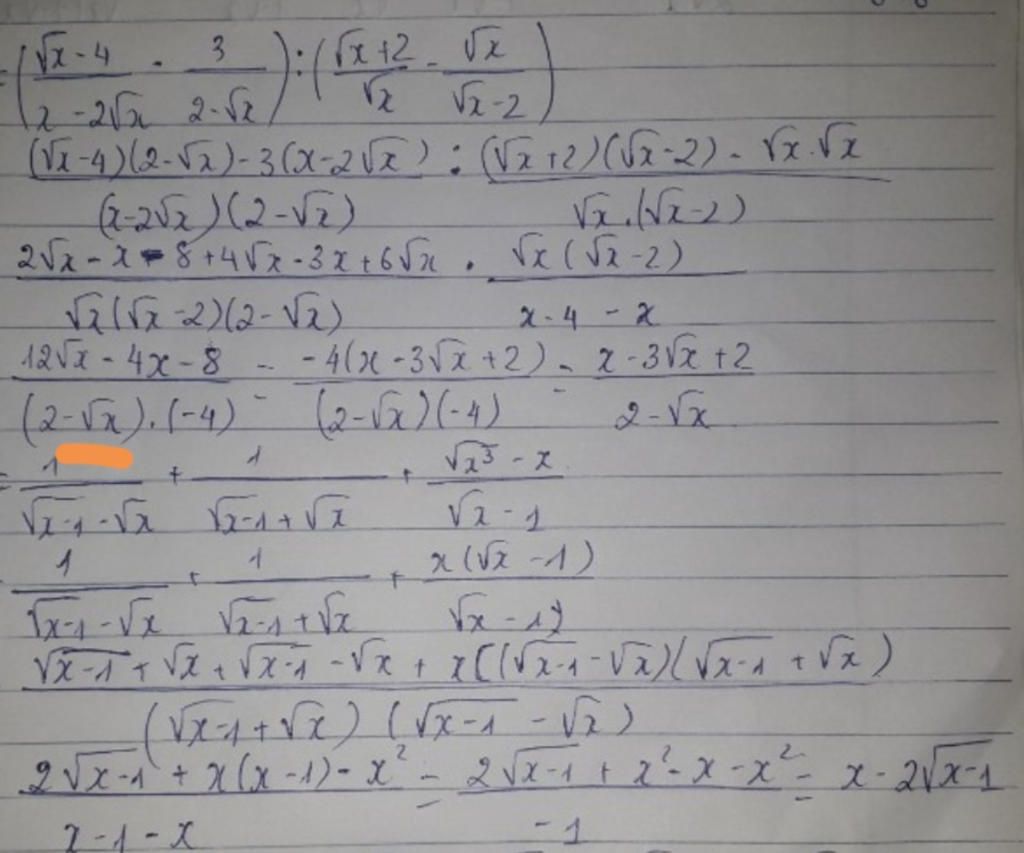 = ((√x - 4)/(x - 2√x) - 3/(2 - √x)) : ((√x + 2)/√x - √x/(√x - 2))
((√x - 4)(2 - √x) - 3(x - 2√x))/((x - 2√x)(2 - √x)) : ((√x + 2)(√x - 2) - √x.√x)/(√x.(√x - 2))
(2√x - x - 8 + 4√x - 3x + 6√x)/(√x(√x - 2)(2 - √x)) . (√x(√x - 2))/(x - 4 - x)
(12√x - 4x - 8)/((2 - √x).(-4)) = (-4(x - 3√x + 2))/((2 - √x)(-4)) = (x - 3√x + 2)/(2 - √x)
= 1/(√(x-1) - √x) + 1/(√(x-1) + √x) + (√x³ - x)/(√x - 1)
1/(√(x-1) - √x) + 1/(√(x-1) + √x) + (x(√x - 1))/(√x - 1)
(√(x-1) + √x + √(x-1) - √x + x[(√(x-1) - √x)(√(x-1) + √x))/((√(x-1) + √x)(√(x-1) - √x))
(2√(x-1) + x(x - 1) - x²)/(x - 1 - x) = (2√(x-1) + x² - x - x²)/(-1) = x - 2√(x-1)